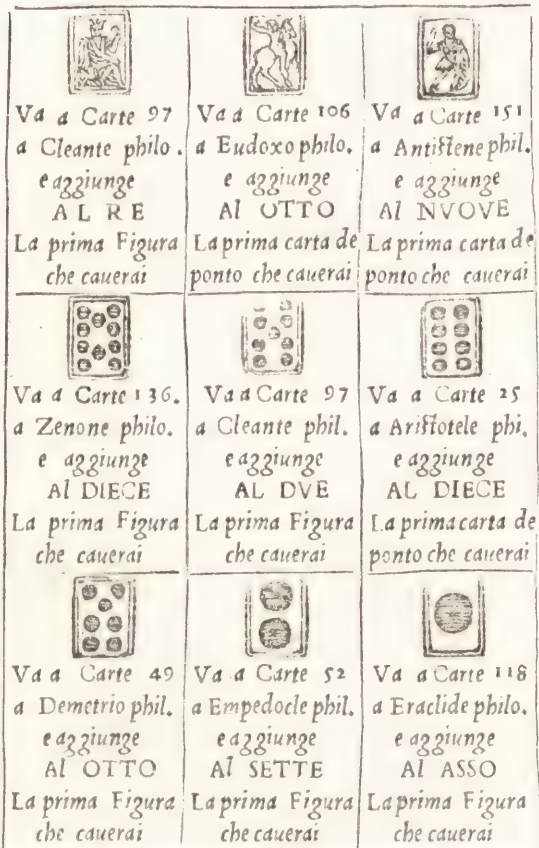 Va a Carte 97
a Cleante philo.
e aggiunge
AL RE
La prima Figura
che cauerai
Va a Carte 106
a Eudoxo philo.
e aggiunge
Al OTTO
La prima carta de
ponto che cauerai
Va a Carte 151
a Antistene phil.
e aggiunge
Al NVOVE
La prima carta de
ponto che cauerai
Va a Carte 136.
a Zenone philo.
e aggiunge
Al DIECE
La prima Figura
che cauerai
Va a Carte 97
a Cleante phil.
e aggiunge
AL DVE
La prima Figura
che cauerai
Va a Carte 25
a Aristotele phi.
e aggiunge
AL DIECE
La prima carta de
ponto che cauerai
Va a Carte 49
a Demetrio phil.
e aggiunge
Al OTTO
La prima Figura
che cauerai
Va a Carte 52
a Empedocle phil.
e aggiunge
Al SETTE
La prima Figura
che cauerai
Va a Carte 118
a Eraclide philo.
e aggiunge
Al ASSO
La prima Figura
che cauerai